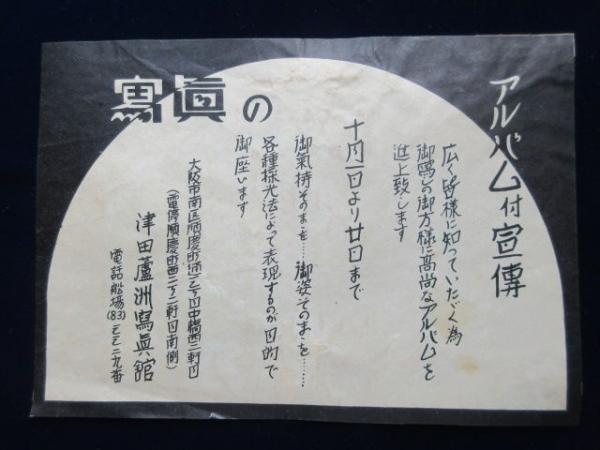 アルバム付宣傳
の寫眞
広く皆様に知っていたゞく為
御寫の御方様に高尚なアルバムを
進上致します
十月一日より廿日まで
御氣持そのまゝを……御姿そのまゝを……
各種採光法によって表現するのが目的で
御座います
大阪市南区順慶町通二丁目中橋西二軒目
(電停順慶町西二丁二軒目南側)
津田蘆洲寫眞館
電話船場(83)三三二九番